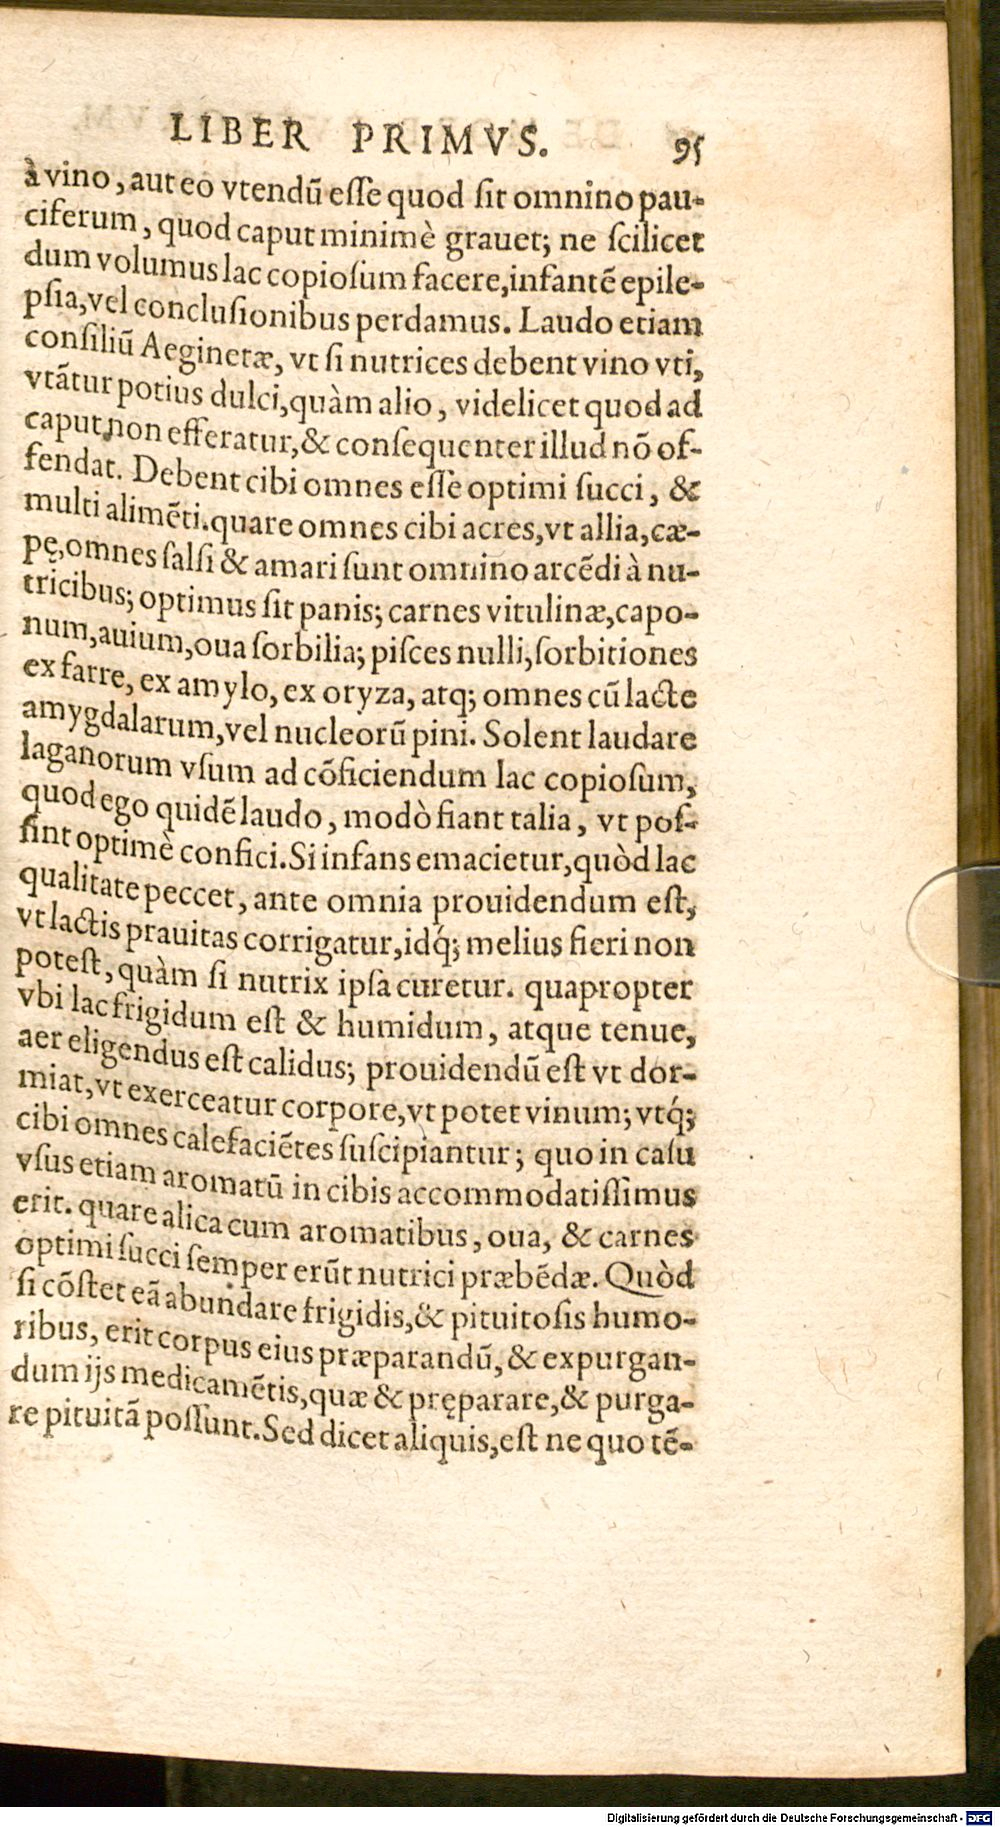 LIBER PRIMVS. 95
à vino, aut eo vtendū eſſe quod ſit omnino pau-
ciferum, quod caput minimè grauet; ne ſcilicet
dum volumus lac copioſum facere, infantē epile-
pſia, vel concluſionibus perdamus. Laudo etiam
conſiliū Aeginetæ, vt ſi nutrices debent vino vti,
vtātur potius dulci, quàm alio, videlicet quod ad
caput non efferatur, & conſequenter illud nō of-
fendat. Debent cibi omnes eſſe optimi ſucci, &
multi alimēti. quare omnes cibi acres, vt allia, cæ-
pę, omnes ſalſi & amari ſunt omnino arcēdi à nu-
tricibus; optimus ſit panis; carnes vitulinæ, capo-
num, auium, oua ſorbilia; piſces nulli, ſorbitiones
ex farre, ex amylo, ex oryza, atq; omnes cū lacte
amygdalarum, vel nucleorū pini. Solent laudare
laganorum vſum ad cōficiendum lac copioſum,
quod ego quidē laudo, modò fiant talia, vt poſ-
ſint optimè confici. Si infans emacietur, quòd lac
qualitate peccet, ante omnia prouidendum eſt,
vt lactis prauitas corrigatur, idq́; melius fieri non
poteſt, quàm ſi nutrix ipſa curetur. quapropter
vbi lac frigidum eſt & humidum, atque tenue,
aer eligendus eſt calidus; prouidendū eſt vt dor-
miat, vt exerceatur corpore, vt potet vinum; vtq́;
cibi omnes calefaciētes ſuſcipiantur; quo in caſu
vſus etiam aromatū in cibis accommodatiſſimus
erit. quare alica cum aromatibus, oua, & carnes
optimi ſucci ſemper erūt nutrici præbēdæ. Quòd
ſi cōſtet eā abundare frigidis, & pituitoſis humo-
ribus, erit corpus eius præparandū, & expurgan-
dum ijs medicamētis, quæ & pręparare, & purga-
re pituitā poſſunt. Sed dicet aliquis, eſt ne quo tē-
Digitalisierung gefördert durch die Deutsche Forschungsgemeinschaft - DFG